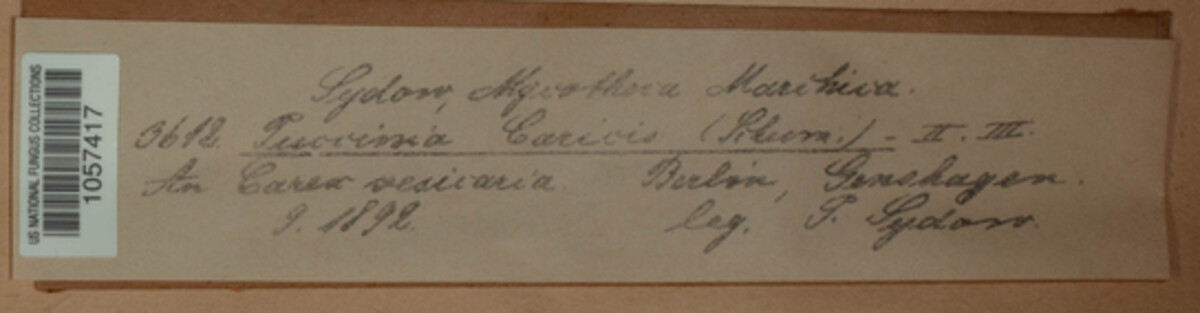 US NATIONAL FUNGUS COLLECTIONS
1057417
Sydow, Mycotheca Marchica.
3612. Puccinia Caricis (Schum.) - II. III.
An Carex vesicaria. Berlin, Genshagen.
9. 1892. leg. P. Sydow.